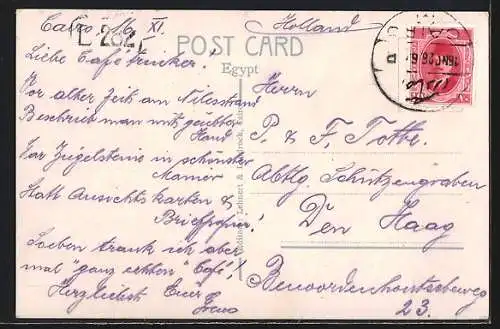 Cairo, 16. XI.
L 282
Holland
POST CARD
Egypt
Liebe Cafétrinker!
Vor alter Zeit am Nilesstrand
Beschrieb man mit geübter
Hand
Vor Ziegelsteine in schönster
Manier
Statt Ansichtskarten &
Briefpapier!
Soeben trank ich aber
mal "ganz echten" Café!
Herzlichst Euer
Herrn
P. & F. Totte.
Abtlg. Schützengraben
Den Haag
Benoordenhoutscheweg
23.